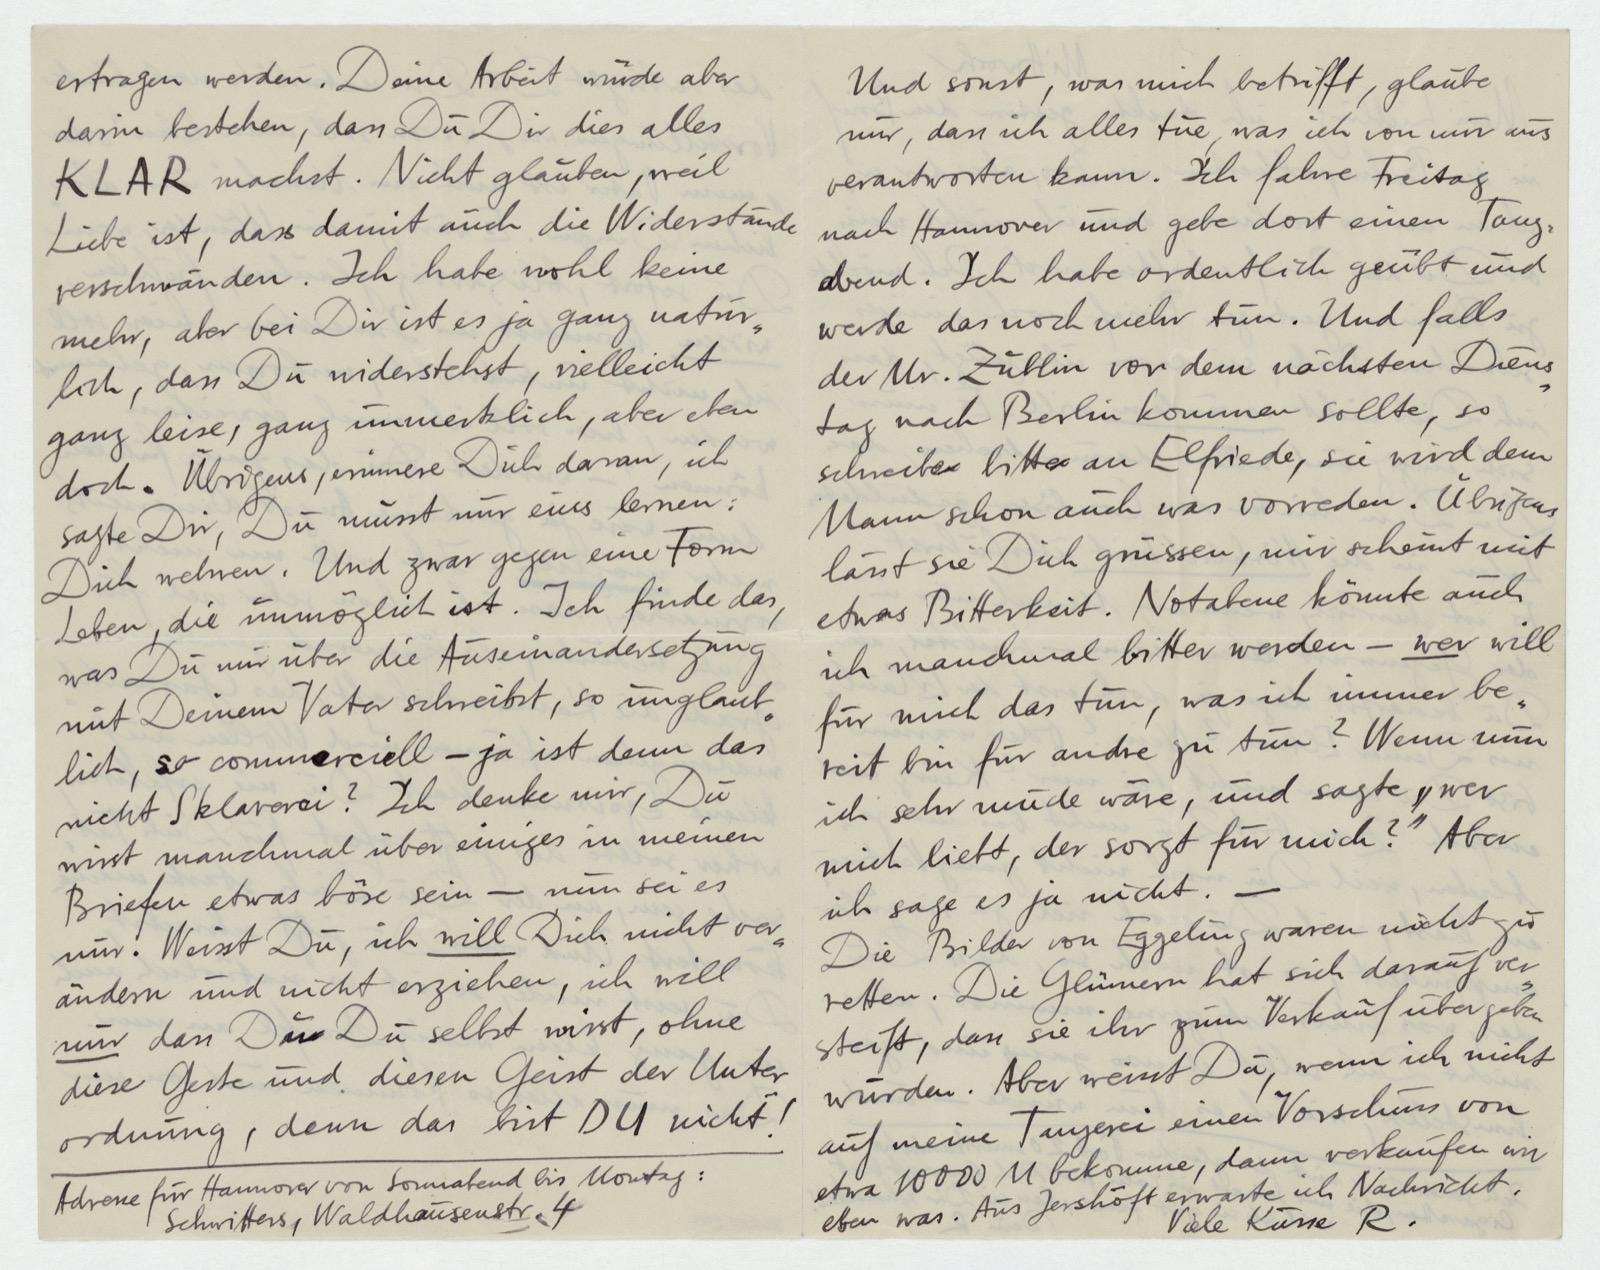 ertragen werden. Deine Arbeit würde aber
darin bestehen, dass Du Dir dies alles
KLAR machst. Nicht glauben, weil
Liebe ist, dass damit auch die Widerstände
verschwänden. Ich habe wohl keine
mehr, aber bei Dir ist es ja ganz natür-
lich, dass Du widerstehst, vielleicht
ganz leise, ganz unmerklich, aber eben
doch. Übrigens, erinnere Dich daran, ich
sagte Dir, Du musst nur eins lernen:
Dich wehren. Und zwar gegen eine Form
Leben, die unmöglich ist. Ich finde das,
was Du mir über die Auseinandersetzung
mit Deinem Vater schreibst, so unglaub-
lich, so commerciell – ja ist denn das
nicht Sklaverei? Ich denke mir, Du
wirst manchmal über einiges in meinen
Briefen etwas böse sein – nun sei es
nur. Weisst Du, ich will Dich nicht ver-
ändern und nicht erziehen, ich will
nur dass Du Du selbst wirst, ohne
diese Geste und diesen Geist der Unter
ordnung, denn das bist DU nicht!
Adresse für Hannover von Sonnabend bis Montag:
Schwitters, Waldhausenstr. 4
Und sonst, was mich betrifft, glaube
nur, dass ich alles tue, was ich von mir aus
verantworten kann. Ich fahre Freitag
nach Hannover und gebe dort einen Tanz-
abend. Ich habe ordentlich geübt und
werde das noch mehr tun. Und falls
der Mr. Züblin vor dem nächsten Diens-
tag nach Berlin kommen sollte, so
schreibe bitte an Elfriede, sie wird dem
Mann schon auch was vorreden. Übrigens
lässt sie Dich grüssen, mir scheint mit
etwas Bitterkeit. Notabene könnte auch
ich manchmal bitter werden – wer will
für mich das tun, was ich immer be-
reit bin für andre zu tun? Wenn nun
ich sehr müde wäre, und sagte „wer
mich liebt, der sorgt für mich?" Aber
ich sage es ja nicht. –
Die Bilder von Eggeling waren nicht zu
retten. Die Glümern hat sich darauf ver-
steift, dass sie ihr zum Verkauf übergeben
wurden. Aber weisst Du, wenn ich nicht
auf meine Tanzerei einen Vorschuss von
etwa 10000 M bekomme, dann verkaufen wir
eben was. Aus Jershöft erwarte ich Nachricht.
Viele Küsse R.